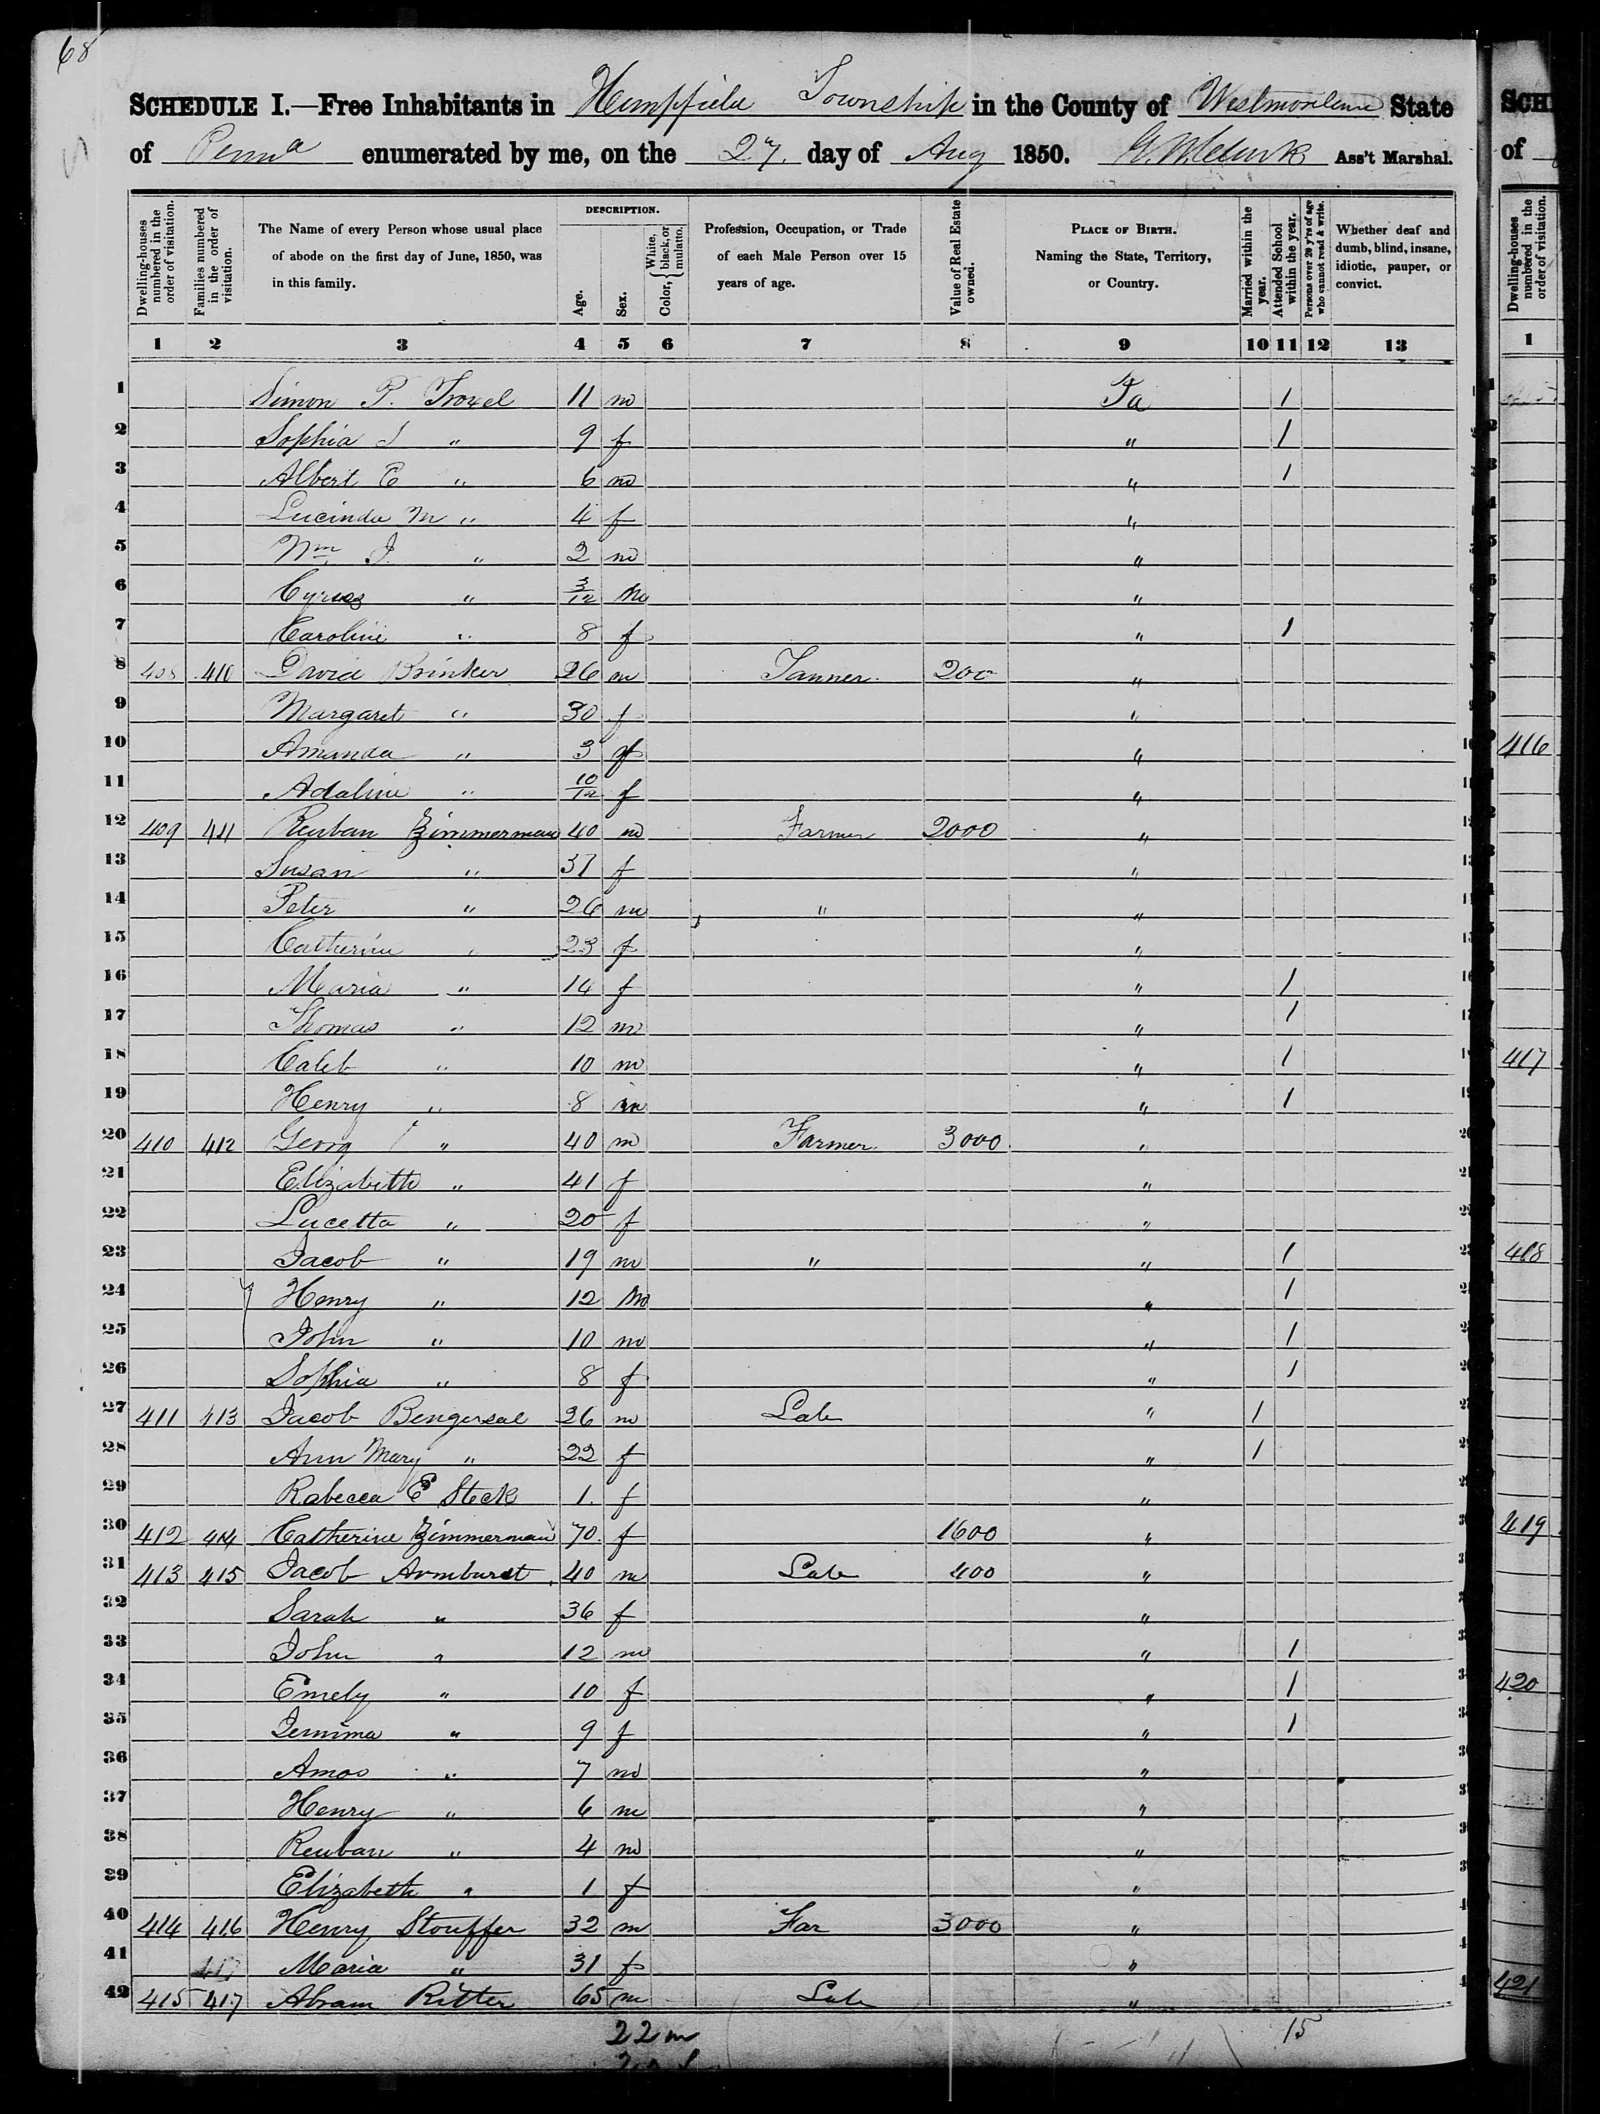 68
SCHEDULE I.—Free Inhabitants in Hempfield Township in the County of Westmoreland State
of Penna enumerated by me, on the 27. day of Aug 1850. Ass't Marshal.
Dwelling-houses numbered in the order of visitation.
Families numbered in the order of visitation.
The Name of every Person whose usual place of abode on the first day of June, 1850, was in this family.
DESCRIPTION.
Age.
Sex.
Color, { White, black, or mulatto.
Profession, Occupation, or Trade of each Male Person over 15 years of age.
Value of Real Estate owned.
PLACE OF BIRTH. Naming the State, Territory, or Country.
Married within the year.
Attended School within the year.
Persons over 20 y'rs of age who cannot read & write.
Whether deaf and dumb, blind, insane, idiotic, pauper, or convict.
1 2 3 4 5 6 7 8 9 10 11 12 13
1 Simon P. Troxel 11 m Pa 1
2 Sophia J " 9 f " 1
3 Albert E " 6 m " 1
4 Lucinda M " 4 f "
5 Wm J. " 2 m "
6 Cyrus " 3/12 m "
7 Caroline " 8 f " 1
8 408 410 David Brinker 26 m Tanner. 200 "
9 Margaret " 30 f "
10 Amanda " 3 f "
11 Adaline " 10/12 f "
12 409 411 Reuban Zimmerman 40 m Farmer 2000 "
13 Susan " 37 f "
14 Peter " 26 m " "
15 Catherine " 23 f "
16 Maria " 14 f " 1
17 Thomas " 12 m " 1
18 Caleb " 10 m " 1
19 Henry " 8 m " 1
20 410 412 Georg " 40 m Farmer. 3000 "
21 Elizabeth " 41 f "
22 Lucetta " 20 f "
23 Jacob " 19 m " " 1
24 Henry " 12 m " 1
25 John " 10 m " 1
26 Sophia " 8 f " 1
27 411 413 Jacob 26 m Lab " 1
28 Ann Mary " 22 f " 1
29 Rabecca E Steck 1 f "
30 412 414 Catherine Zimmerman 70 f 1600 "
31 413 415 Jacob Armburst 40 m Lab 400 "
32 Sarah " 36 f "
33 John " 12 m " 1
34 Emely " 10 f " 1
35 Jemima " 9 f " 1
36 Amos " 7 m "
37 Henry " 6 m "
38 Reuban " 4 m "
39 Elizabeth " 1 f "
40 414 416 Henry Stouffer 32 m Far 3000 "
41 Maria " 31 f "
42 415 417 Abram Ritter 65 m Lab "
22 m
15
SCH
of
Dwelling-houses numbered in the order of visitation.
1
416
417
418
419
420
421